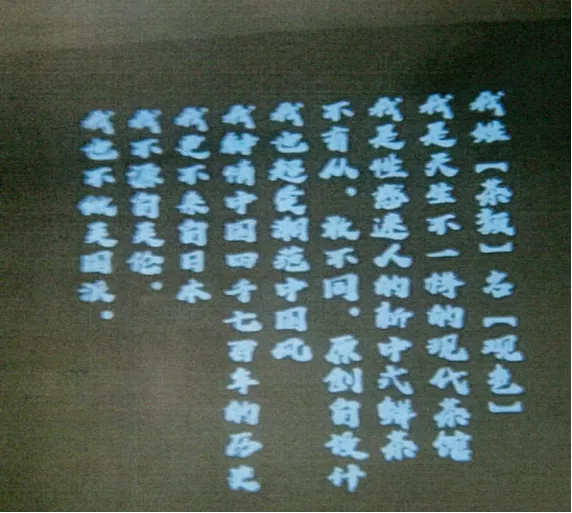 我姓【茶颜】名【观色】
我是天生不一样的现代茶馆
我是性感迷人的新中式鲜茶
不盲从。敢不同。原创自设计
我也超爱潮范中国风
我钟情中国四千七百年的历史
我不来自日本
我不源自英伦。
我也不似美国派。